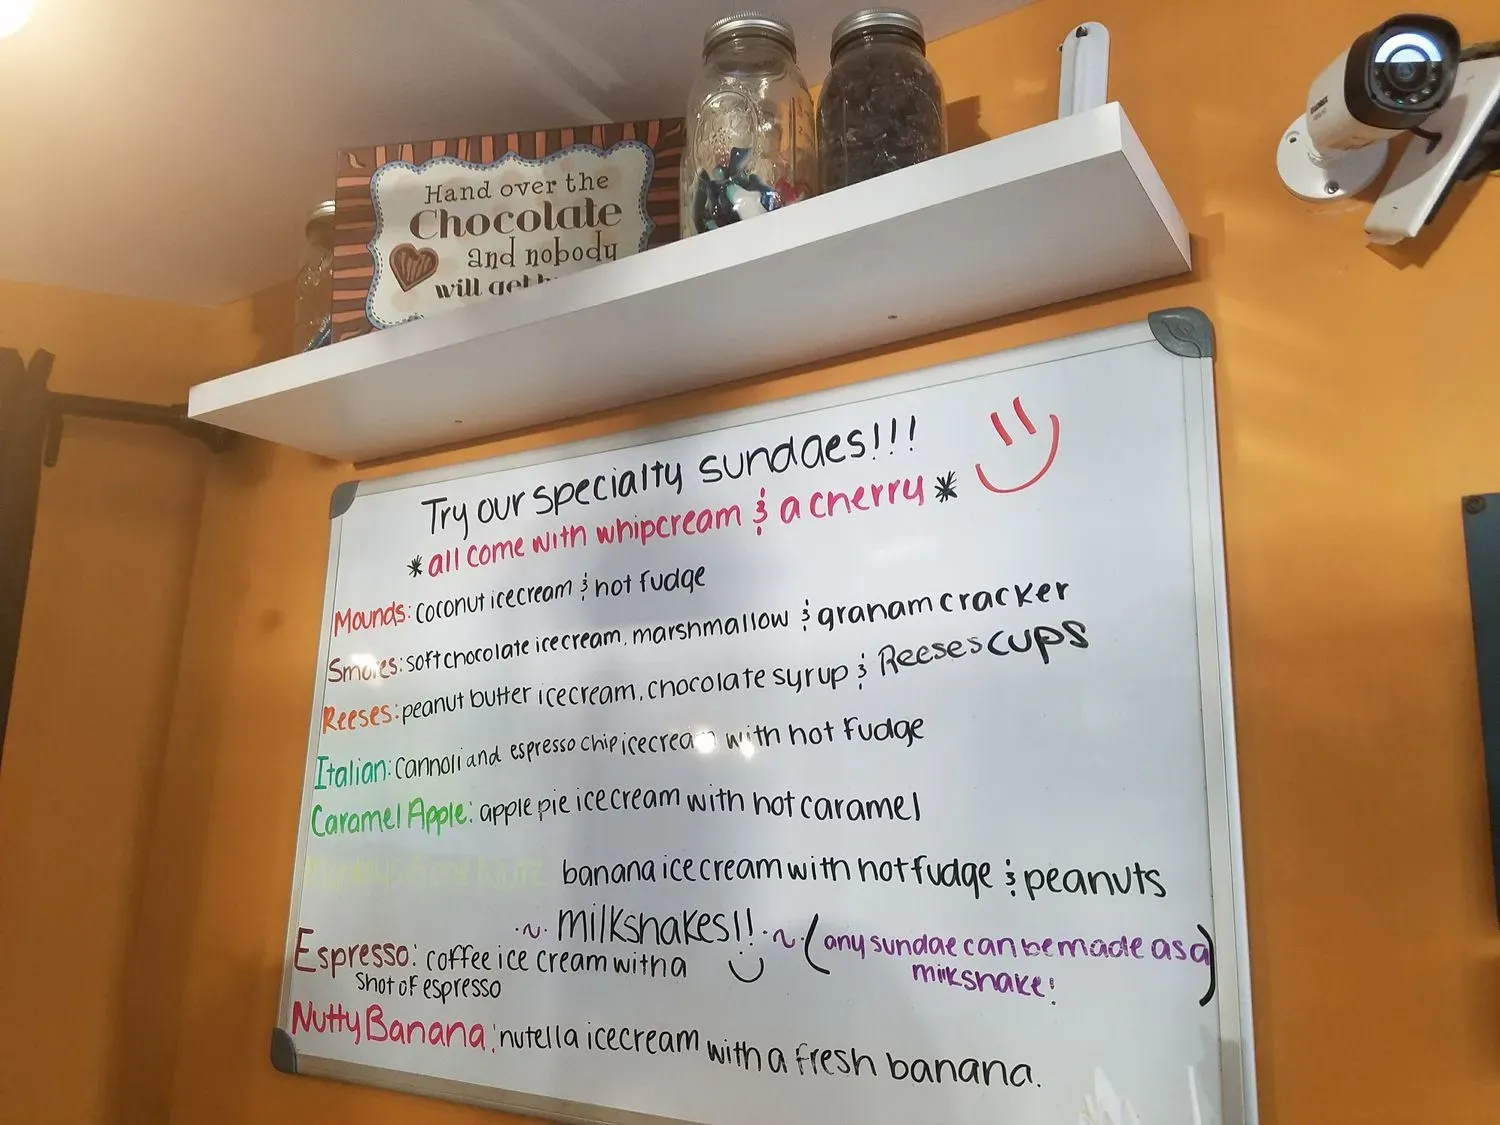 Hand over the
Chocolate
and nobody
will get
Try our specialty sundaes!!!
*all come with whipcream & a cherry*
Mounds: coconut icecream & hot fudge
Smores: soft chocolate icecream, marshmallow & graham cracker
Reeses: peanut butter icecream, chocolate syrup & Reeses cups
Italian: Cannoli and espresso chip icecream with hot fudge
Caramel Apple: apple pie icecream with hot caramel
banana icecream with hot fudge & peanuts
~ Milkshakes!! ~ (any sundae can be made as a
milkshake!)
Espresso: coffee ice cream with a
shot of espresso
Nutty Banana: nutella icecream with a fresh banana.